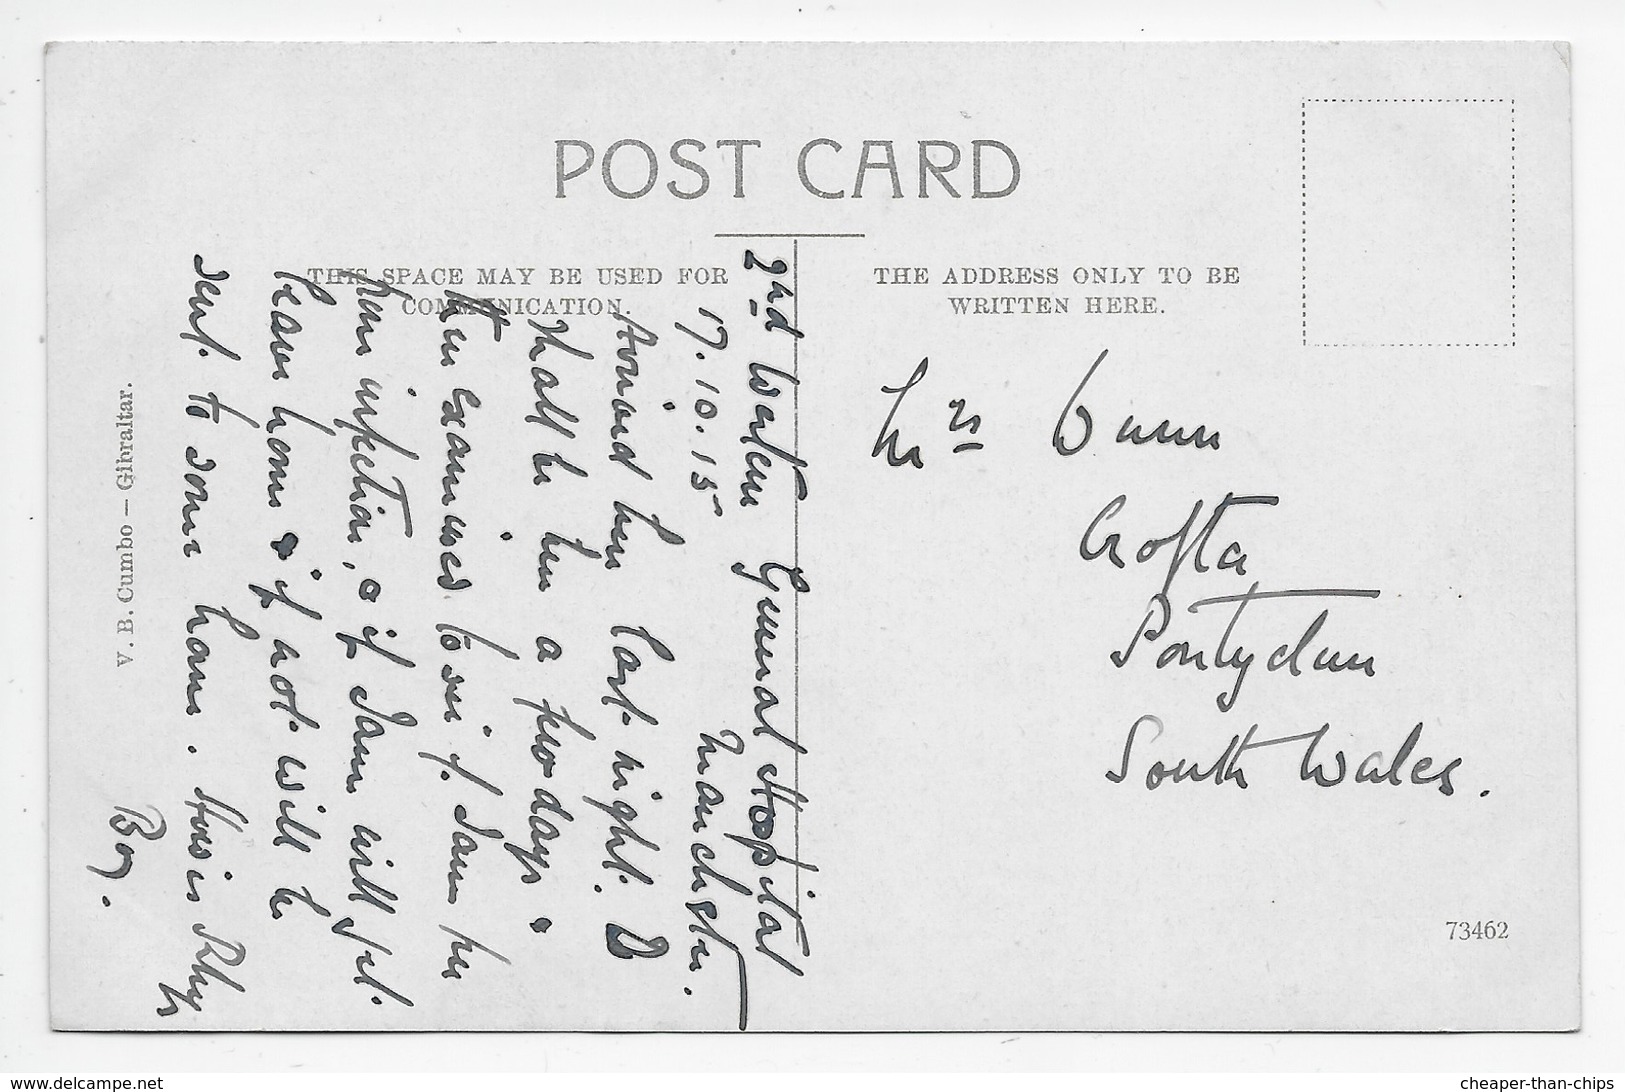 POST CARD
THIS SPACE MAY BE USED FOR
COMMUNICATION.
THE ADDRESS ONLY TO BE
WRITTEN HERE.
2nd Western General Hospital
17.10.15 Manchester.
Arrived here last night. I
shall be here a few days &
then examined to see if I am free
from infection, & if I am will get
leave home & if not will be
sent to some home. How is Rhys
Boy.
Mrs Gunn
Crofta
Pontyclun
South Wales.
V. B. Cumbo – Gibraltar.
73462
delcampe.net
cheaper-than-chips